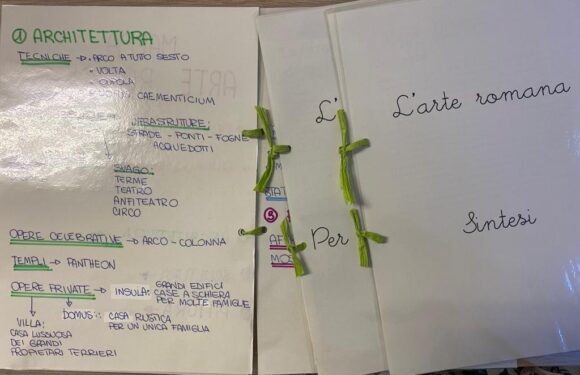 ① ARCHITETTURA
TECNICHE → ARCO A TUTO SESTO
• VOLTA
• CUPOLA
CAEMENTICIUM
INFRASTRUTTURE:
STRADE - PONTI - FOGNE
ACQUEDOTTI
SVAGO:
TERME
TEATRO
ANFITEATRO
CIRCO
OPERE CELEBRATIVE → ARCO - COLONNA
TEMPLI → PANTHEON
OPERE PRIVATE → INSULA: GRANDI EDIFICI
CASE A SCHIERA
PER MOLTE FAMIGLIE
DOMUS: CASA RUSTICA
PER UN'UNICA FAMIGLIA
VILLA:
CASA LUSSUOSA
DEI GRANDI
PROPRIETARI TERRIERI
STAT
③
AF
MOS
L'
Per
L'arte romana
Sintesi